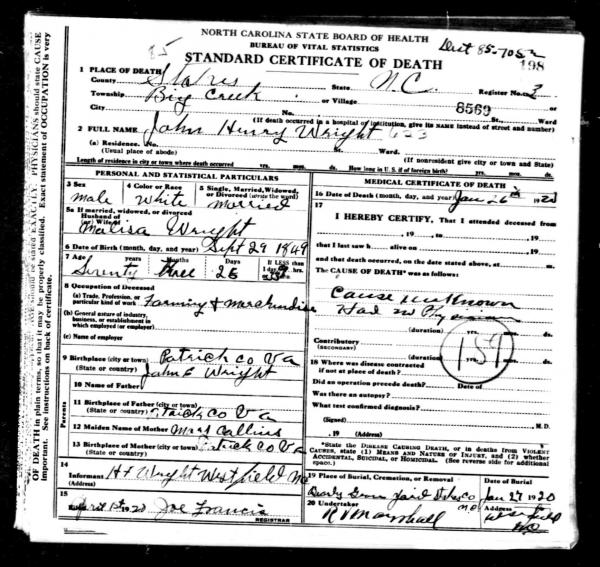 NORTH CAROLINA STATE BOARD OF HEALTH
BUREAU OF VITAL STATISTICS
85 Dist 85-70
STANDARD CERTIFICATE OF DEATH 198
1 PLACE OF DEATH
County Stokes State N.C. Register No. 3
Township Big Creek or Village 8569
City No. St. Ward
(If death occurred in a hospital or institution, give its NAME instead of street and number)
2 FULL NAME John Henry Wright
(a) Residence. No. St. Ward.
(Usual place of abode) (If nonresident give city or town and State)
Length of residence in city or town where death occurred yrs. mos. ds. How long in U. S. if of foreign birth? yrs. mos. ds.
PERSONAL AND STATISTICAL PARTICULARS
3 Sex 4 Color or Race 5 Single, Married, Widowed, or Divorced (write the word)
male White Married
5a If married, widowed, or divorced
Husband of
(or) Wife of Malisa Wright
6 Date of Birth (month, day, and year) Sept 29 1849
7 Age years Months Days If LESS than
Seventy three 26
8 Occupation of Deceased
(a) Trade, Profession, or particular kind of work Farming & Merchandise
(b) General nature of industry, business, or establishment in which employed (or employer)
(c) Name of employer
9 Birthplace (city or town) Patrick co Va
(State or country)
10 Name of Father John E Wright
Parents
11 Birthplace of Father (city or town)
(State or country) Patrick Co Va
12 Maiden Name of Mother Mrs Collins
13 Birthplace of Mother (city or town) Patrick Co Va
(State or country)
14
Informant H F Wright Westfield NC
(Address)
15
April 1st 1920 Joe Francis
REGISTRAR
MEDICAL CERTIFICATE OF DEATH
16 Date of Death (month, day, and year) Jan 26 1920
17
I HEREBY CERTIFY, That I attended deceased
from , 19 , to , 19 ,
that I last saw h alive on , 19 ,
and that death occurred, on the date stated above, at m.
The CAUSE OF DEATH* was as follows:
Cause unknown
Had no Physician
(duration) yrs. mos. ds.
Contributory
(SECONDARY)
(duration) yrs. mos. ds.
18 Where was disease contracted
if not at place of death?
Did an operation precede death? Date of
Was there an autopsy?
What test confirmed diagnosis?
(Signed) , M. D.
, 19 (Address)
*State the DISEASE CAUSING DEATH, or in deaths from VIOLENT CAUSES, state (1) MEANS AND NATURE OF INJURY, and (2) whether ACCIDENTAL, SUICIDAL, or HOMICIDAL. (See reverse side for additional space.)
19 Place of Burial, Cremation, or Removal Date of Burial
Stokes Co N.C. Jan 27 1920
20 Undertaker Address
R V Marshall Westfield NC
OF DEATH in plain terms, so that it may be properly classified. Exact statement of OCCUPATION is very important. See instructions on back of certificate.